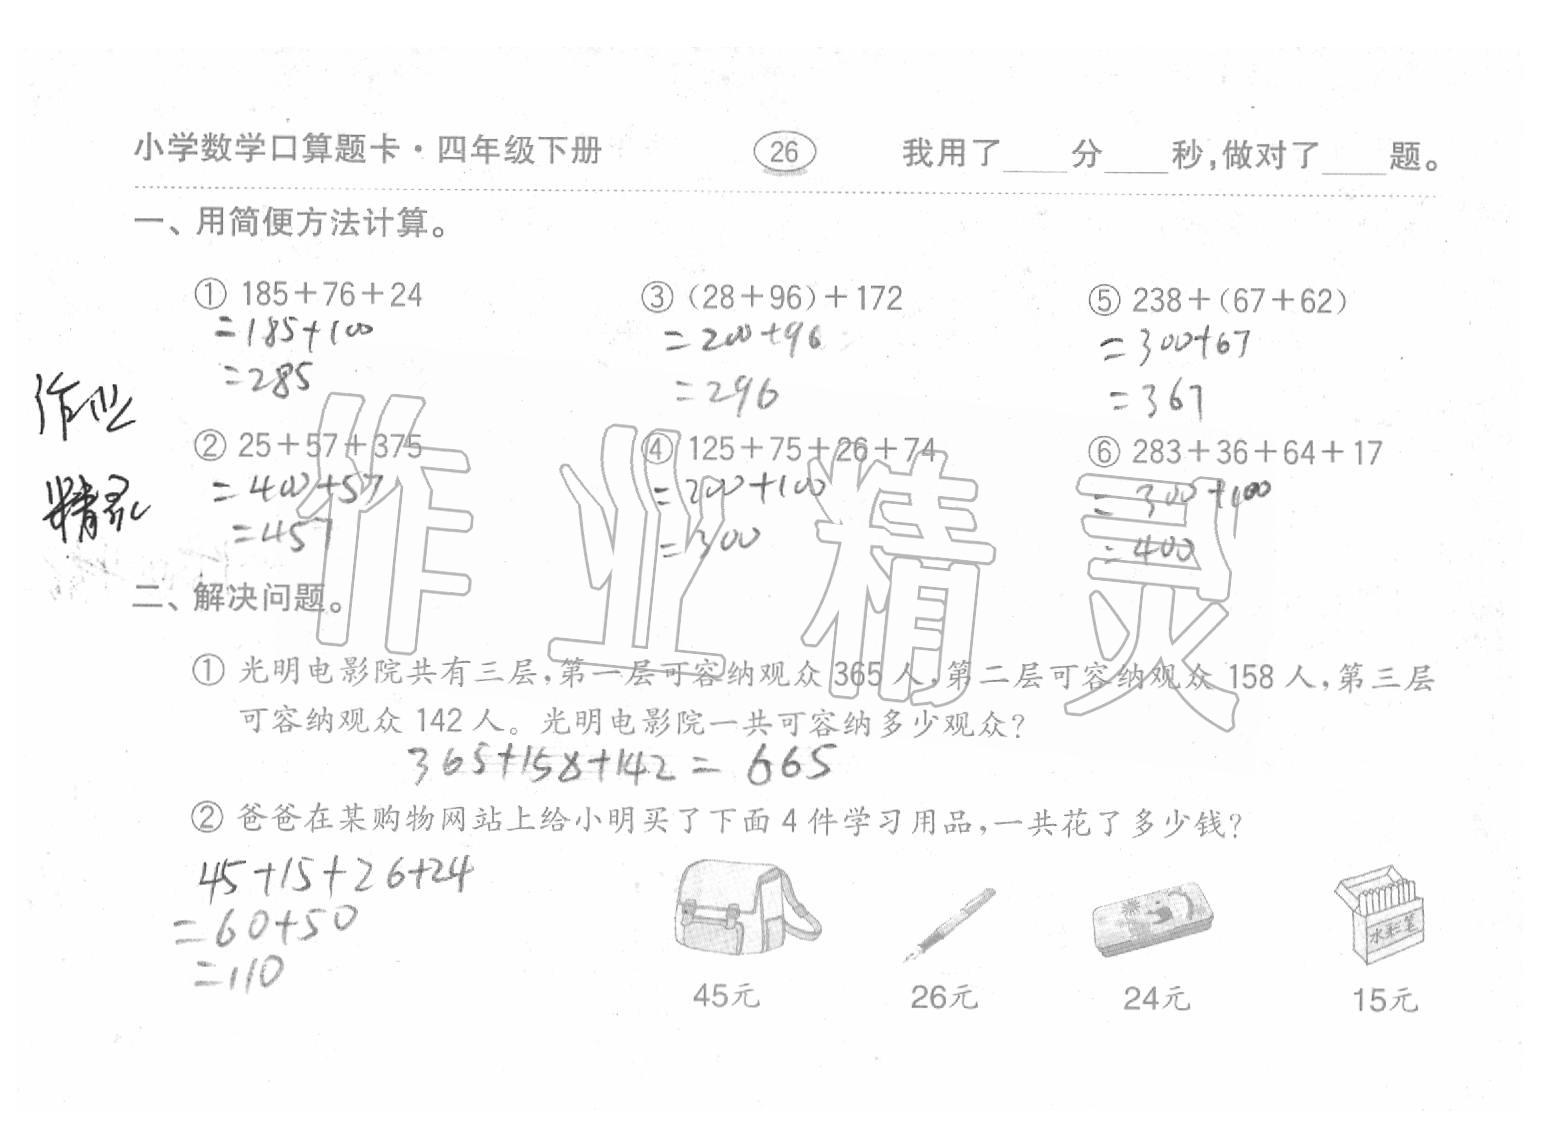 小学数学口算题卡·四年级下册 26 我用了____分____秒,做对了____题。
一、用简便方法计算。
① 185+76+24 ③ (28+96)+172 ⑤ 238+(67+62)
=185+100 =200+96 =300+67
=285 =296 =367
作业
② 25+57+375 ④ 125+75+26+74 ⑥ 283+36+64+17
=400+57 =200+100 =300+100
=457 =300 =400
精灵
作业精灵
二、解决问题。
① 光明电影院共有三层,第一层可容纳观众 365 人,第二层可容纳观众 158 人,第三层
可容纳观众 142 人。光明电影院一共可容纳多少观众?
365+158+142=665
② 爸爸在某购物网站上给小明买了下面 4 件学习用品,一共花了多少钱?
45+15+26+24
=60+50
=110
水彩笔
45元 26元 24元 15元